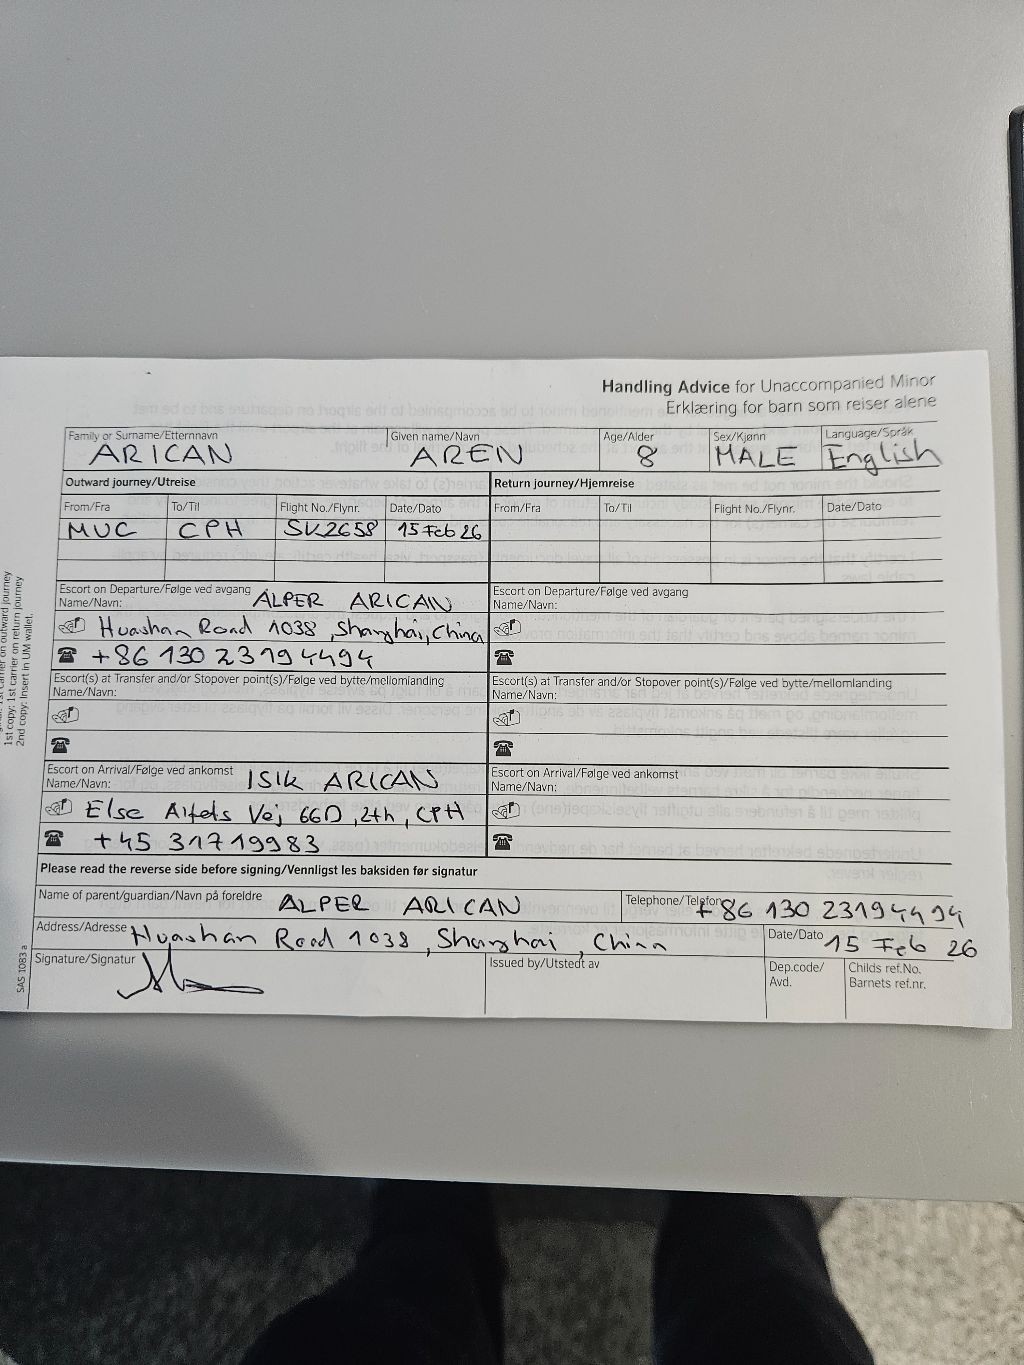 Handling Advice for Unaccompanied Minor
Erklæring for barn som reiser alene
Family or Surname/Etternnavn Given name/Navn Age/Alder Sex/Kjønn Language/Språk
ARICAN AREN 8 MALE English
Outward journey/Utreise Return journey/Hjemreise
From/Fra To/Til Flight No./Flynr. Date/Dato From/Fra To/Til Flight No./Flynr. Date/Dato
MUC CPH SK2658 15 Feb 26
Escort on Departure/Følge ved avgang Escort on Departure/Følge ved avgang
Name/Navn: ALPER ARICAN Name/Navn:
Huashan Road 1038, Shanghai, China
+86 130 2319 4494
Escort(s) at Transfer and/or Stopover point(s)/Følge ved bytte/mellomlanding Escort(s) at Transfer and/or Stopover point(s)/Følge ved bytte/mellomlanding
Name/Navn: Name/Navn:
Escort on Arrival/Følge ved ankomst Escort on Arrival/Følge ved ankomst
Name/Navn: ISIK ARICAN Name/Navn:
Else Alfelts Vej 66D, 2th, CPH
+45 31719983
Please read the reverse side before signing/Vennligst les baksiden før signatur
Name of parent/guardian/Navn på foreldre ALPER ARICAN Telephone/Telefon +86 130 2319 4494
Address/Adresse Huashan Road 1038, Shanghai, China Date/Dato 15 Feb 26
Signature/Signatur Issued by/Utstedt av Dep.code/ Childs ref.No.
Avd. Barnets ref.nr.
SAS 1083 a
1st copy: 1st carrier on return journey
2nd copy: Insert in UM wallet.